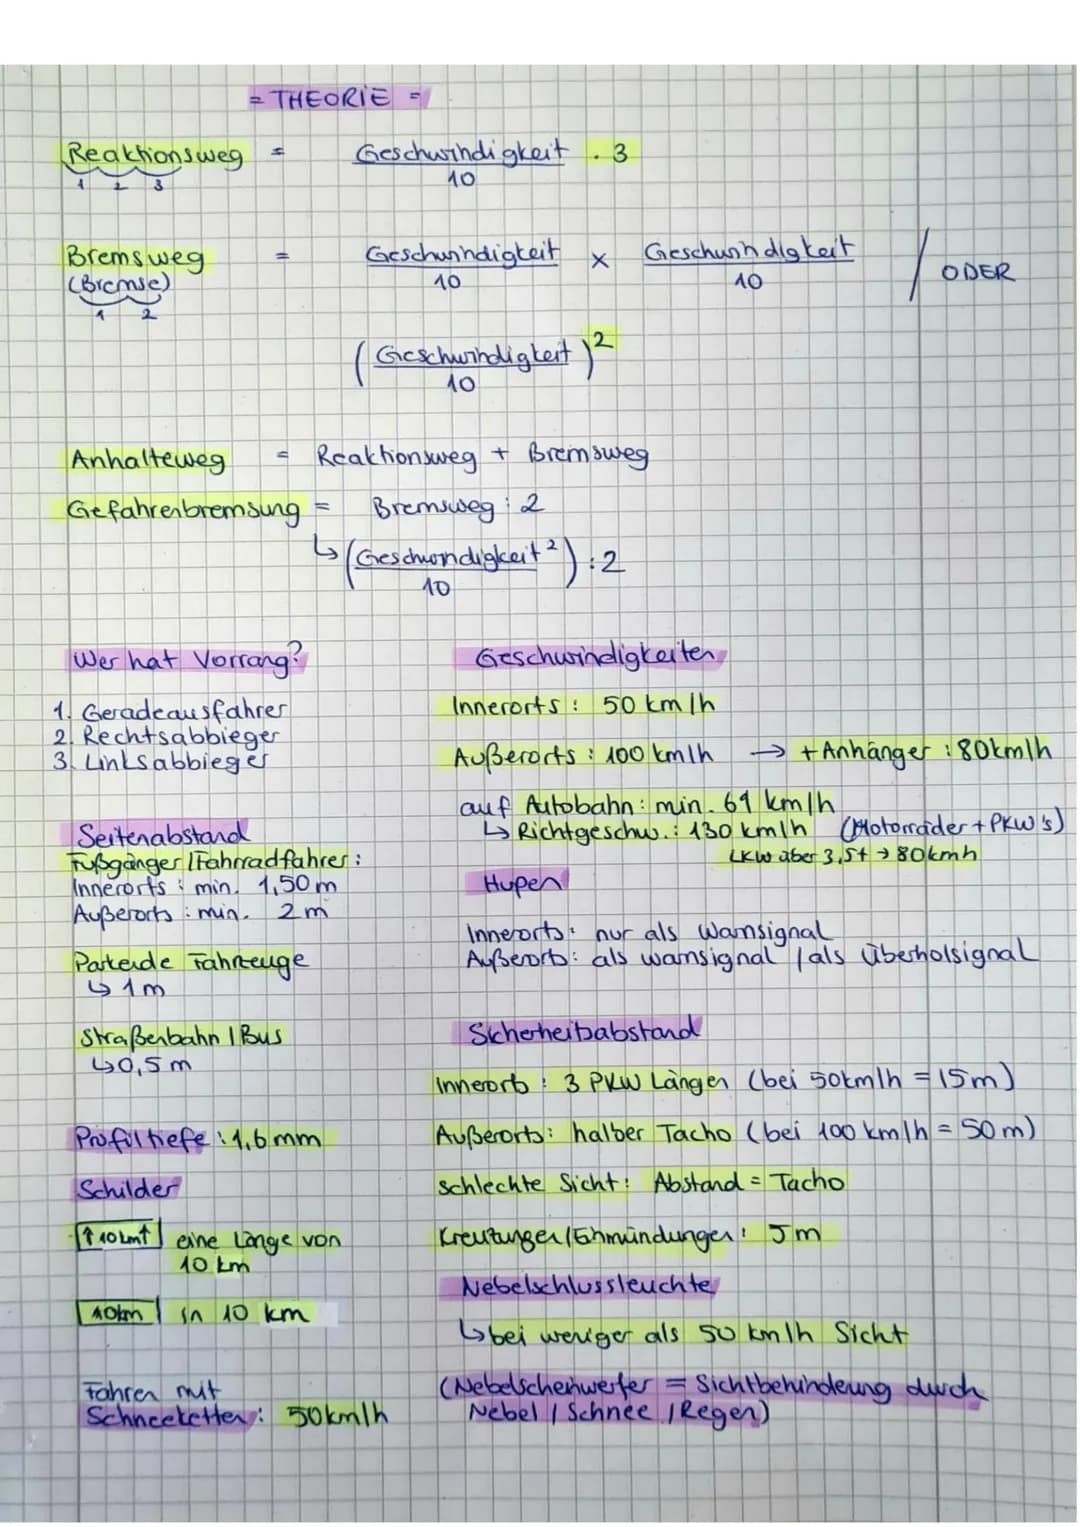 = THEORIE =
Reaktionsweg = Geschwindigkeit . 3
10
1 2 3
Bremsweg = Geschwindigkeit x Geschwindigkeit / ODER
(Bremse) 10 10
1 2
(Geschwindigkeit)²
10
Anhalteweg = Reaktionsweg + Bremsweg
Gefahrenbremsung = Bremsweg : 2
↳ (Geschwindigkeit²) : 2
10
Wer hat Vorrang?
1. Geradeausfahrer
2. Rechtsabbieger
3. Linksabbieger
Seitenabstand
Fußgänger / Fahrradfahrer :
Innerorts : min. 1,50 m
Außerorts : min. 2 m
Parkende Fahrzeuge
↳ 1 m
Straßenbahn / Bus
↳ 0,5 m
Profiltiefe : 1,6 mm
Schilder
↑ 10 km ↑ eine Länge von
10 km
10km in 10 km
Fahren mit
Schneeketten : 50 km/h
Geschwindigkeiten
Innerorts : 50 km/h
Außerorts : 100 km/h → + Anhänger : 80 km/h
auf Autobahn : min. 61 km/h
↳ Richtgeschw. : 130 km/h (Motorräder + PKW's)
LKW über 3,5t → 80 kmh
Hupen
Innerorts : nur als Warnsignal
Außerorts : als warnsignal / als Überholsignal
Sicherheitsabstand
Innerorts : 3 PKW Längen (bei 50 km/h = 15 m)
Außerorts : halber Tacho (bei 100 km/h = 50 m)
schlechte Sicht : Abstand = Tacho
Kreutungen / Einmündungen : 5 m
Nebelschlussleuchte
↳ bei weniger als 50 km/h Sicht
(Nebelscheinwerfer = Sichtbehinderung durch
Nebel / Schnee / Regen)